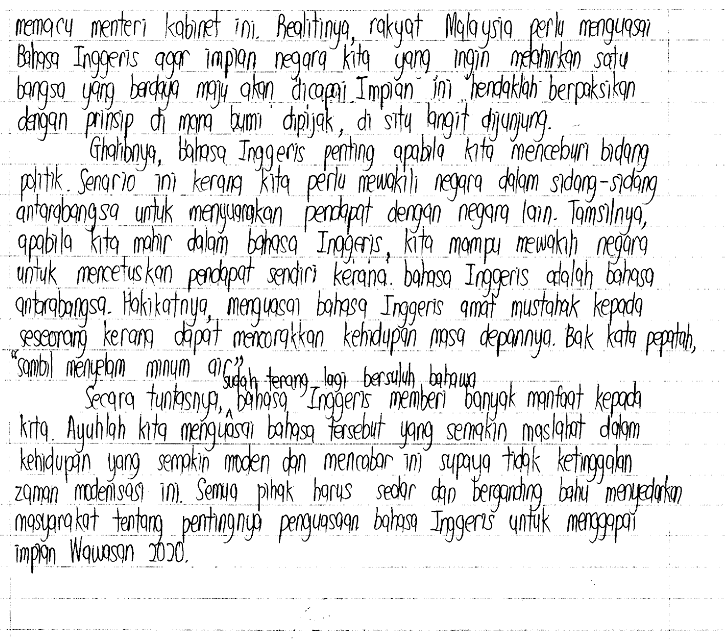 memacu menteri kabinet ini. Realitinya, rakyat Malaysia perlu menguasai
Bahasa Inggeris agar impian negara kita yang ingin melahirkan satu
bangsa yang berdaya maju akan dicapai. Impian ini hendaklah berpaksikan
dengan prinsip di mana bumi dipijak, di situ langit dijunjung.
Ghalibnya, bahasa Inggeris penting apabila kita menceburi bidang
politik. Senario ini kerana kita perlu mewakili negara dalam sidang-sidang
antarabangsa untuk menyuarakan pendapat dengan negara lain. Tamsilnya,
apabila kita mahir dalam bahasa Inggeris, kita mampu mewakili negara
untuk mencetuskan pendapat sendiri kerana. bahasa Inggeris adalah bahasa
antarabangsa. Hakikatnya, menguasai bahasa Inggeris amat mustahak kepada
seseorang kerana dapat mencorakkan kehidupan masa depannya. Bak kata pepatah,
"sambil menyelam minum air".
sudah terang lagi bersuluh bahawa
Secara tuntasnya, ^ bahasa Inggeris memberi banyak manfaat kepada
kita. Ayuhlah kita menguasai bahasa tersebut yang semakin maslahat dalam
kehidupan yang semakin moden dan mencabar ini supaya tidak ketinggalan
zaman modenisasi ini. Semua pihak harus sedar dan berganding bahu menyedarkan
masyarakat tentang pentingnya penguasaan bahasa Inggeris untuk menggapai
impian Wawasan 2020.